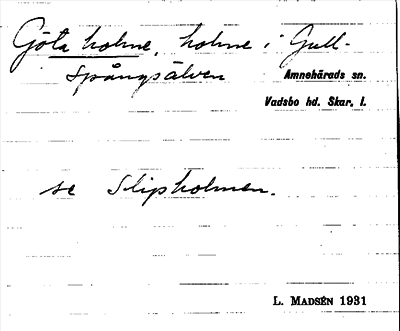 Göta holme, holme i Gull-
spångsälven
Amnehärads sn.
Vadsbo hd. Skar. l.
se Slipholmen.
L. Madsén 1931